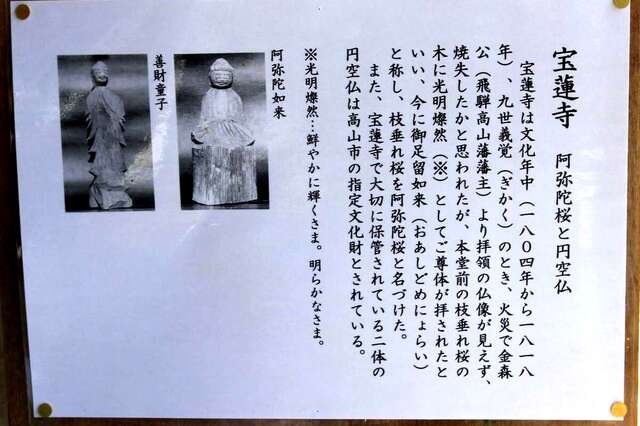 宝蓮寺　阿弥陀桜と円空仏
宝蓮寺は文化年中（一八〇四年から一八一八
年）、九世義覚（ぎかく）のとき、火災で金森
公（飛騨高山藩藩主）より拝領の仏像が見えず、
焼失したかと思われたが、本堂前の枝垂れ桜の
木に光明燦然（※）としてご尊体が拝されたと
いい、今に御足留如来（おあしどめにょらい）
と称し、枝垂れ桜を阿弥陀桜と名づけた。
また、宝蓮寺で大切に保管されている二体の
円空仏は高山市の指定文化財とされている。
※光明燦然…鮮やかに輝くさま。明らかなさま。
阿弥陀如来
善財童子